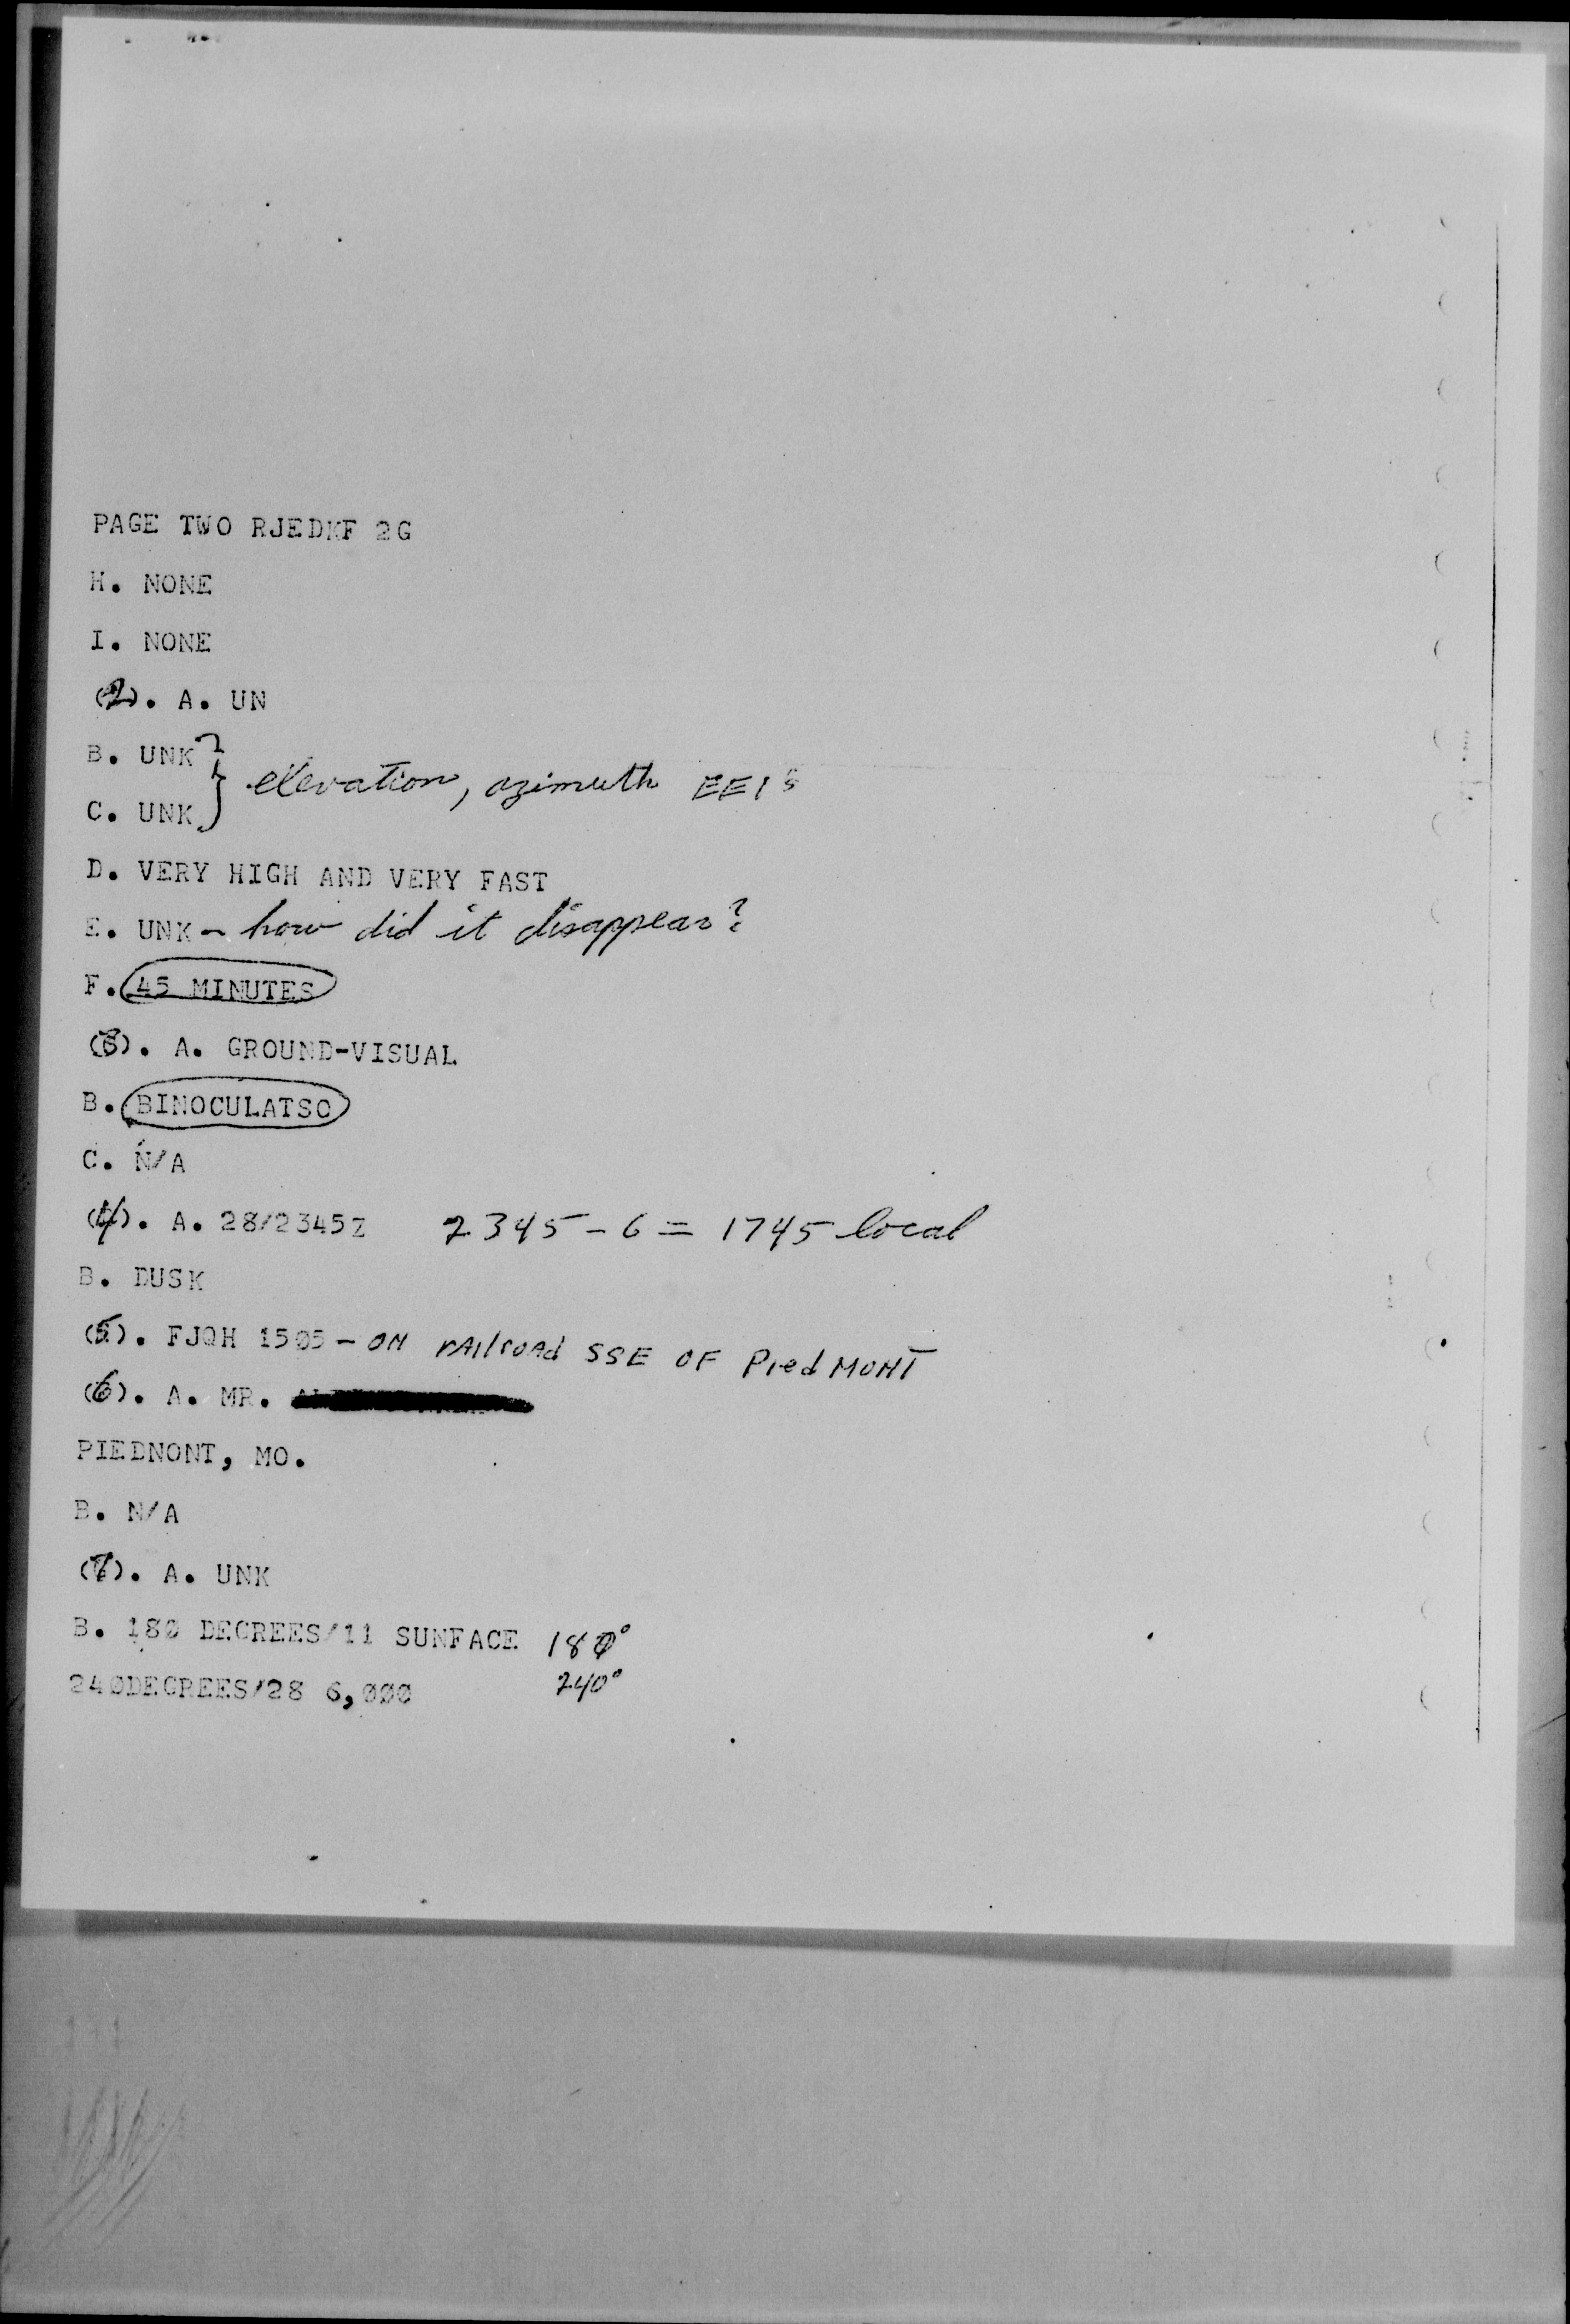 PAGE TWO RJEDKF 2G
H. NONE
I. NONE
(2). A. UN
B. UNK
C. UNK
elevation, azimuth EEI's
D. VERY HIGH AND VERY FAST
E. UNK - how did it disappear?
F. 45 MINUTES
(3). A. GROUND-VISUAL
B. BINOCULATSO
C. N/A
(4). A. 28/2345Z 2345 - 6 = 1745 local
B. DUSK
(5). FJQH 1505 - ON rAIlroAd SSE OF PiedMONT
(6). A. MR.
PIEDNONT, MO.
B. N/A
(7). A. UNK
B. 180 DECREES/11 SUNFACE 180°
240DEGREES/28 6,000 240°